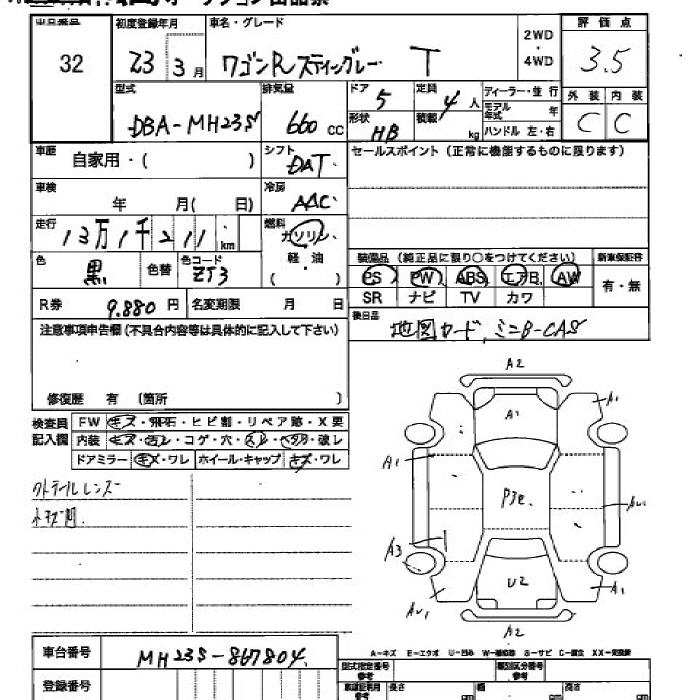 出品番号 初度登録年月 車名・グレード 2WD・4WD 評価点
32 23 3月 ワゴンR スティングレー T 3.5
型式 排気量 ドア 5 定員 4人 ディーラー・並行 外装 内装
DBA-MH23S 660cc 形状 HB 積載 kg モデル年式 年 C C
ハンドル 左・右
車歴 自家用・( ) シフト DAT セールスポイント (正常に機能するものに限ります)
車検 年 月( 日) 冷房 AAC
走行 13万1千211km 燃料 ガソリン・軽油 ( )
色 黒 色替 色コード ZJ3 装備品 (純正品に限り○をつけてください) 新車保証書
PS PW ABS エアB AW 有・無
R券 9.880円 名変期限 月 日 SR ナビ TV カワ
注意事項申告欄(不具合内容等は具体的に記入して下さい) 後日品
地図カード、ミニB-CAS
修復歴 有 (箇所 )
検査員記入欄 FW キズ・飛石・ヒビ割・リペア跡・X要
内装 キズ・汚レ・コゲ・穴・スレ・ヘタリ・破レ
ドアミラー キズ・ワレ ホイール・キャップ キズ・ワレ
A2
A1 A1
A1
P3e AU1
A3
U2
AU1 A1
A2
A-キズ E-エクボ U-凹み W-補修跡 S-サビ C-腐食 XX-交換済
車台番号 MH23S-867804
登録番号
型式指定番号 参考 類別区分番号 参考
長さ cm 幅 cm 高さ cm